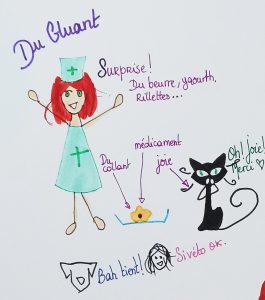 Du Gluant
Surprise!
Du beurre, yaourth,
Rillettes...
médicament
Du collant
joie
Oh! joie!
Merci
Bah tient!
Si véto OK.